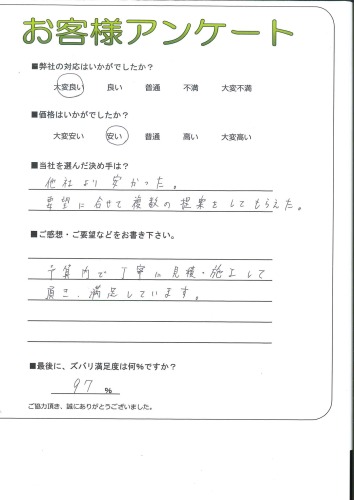 お客様アンケート
■弊社の対応はいかがでしたか？
大変良い 良い 普通 不満 大変不満
■価格はいかがでしたか？
大変安い 安い 普通 高い 大変高い
■当社を選んだ決め手は？
他社より安かった。
要望に合せて複数の提案をしてもらえた。
■ご感想・ご要望などをお書き下さい。
予算内で丁寧に見積・施工して
頂き、満足しています。
■最後に、ズバリ満足度は何%ですか？
97 %
ご協力頂き、誠にありがとうございました。